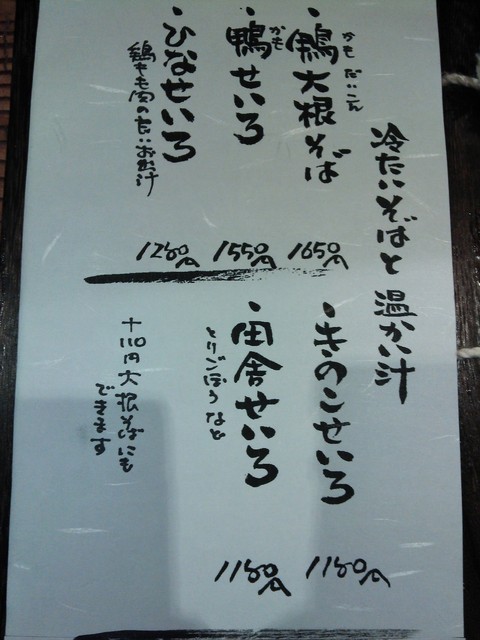 冷たいそばと温かい汁
・鴨大根そば
かも だいこん
1650円
・鴨せいろ
かも
1550円
・ひなせいろ
鶏もも肉の温かいお汁
1250円
・きのこせいろ
1150円
・田舎せいろ
とりごぼうなど
1150円
+110円大根そばにも
できます